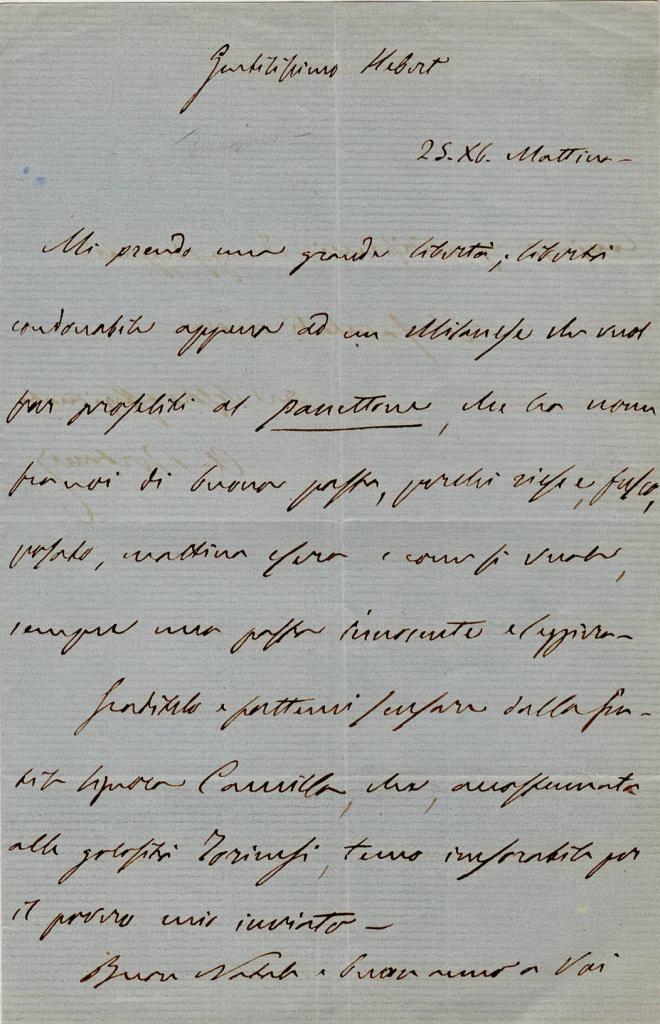 Gentilissimo Hebert
25. Xb. Mattina -
Mi prendo una grande libertà; libertà
condonabile appena ad un Milanese che vuol
far proseliti al panettone, che ha nome
fra noi di buona pasta, perchè riesce, fresco,
posato, mattina e sera e come si vuole,
sempre una pasta innocente e leggiera -
Graditelo e fattemi scusare dalla gen-
tile signora Camilla, che, accostumata
alle golosità Torinesi, temo inesorabile per
il povero mio inviato -
Buon Natale e buon anno a Voi